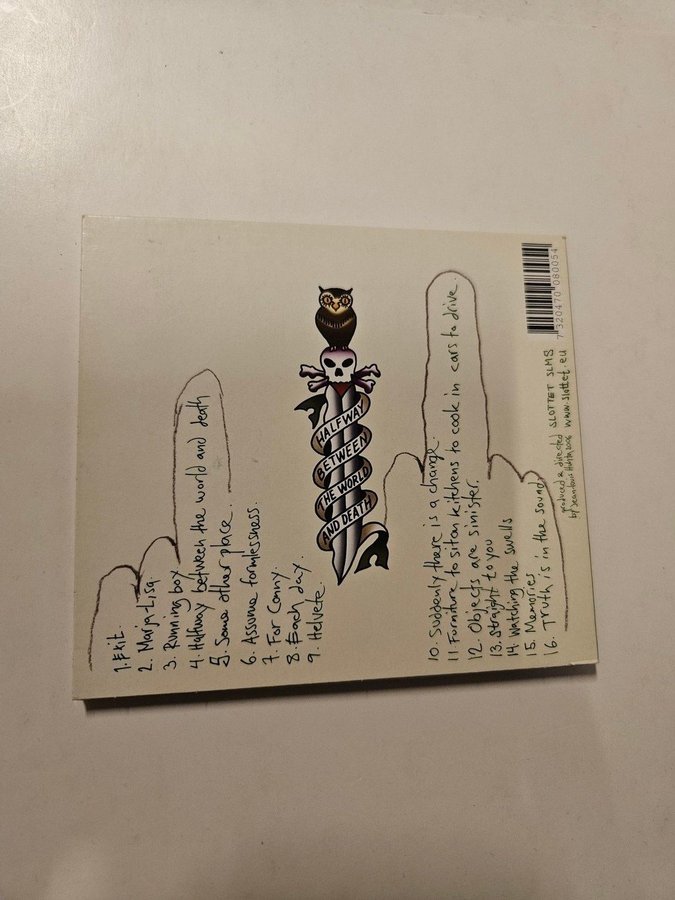 1. Exit.
2. Marja-Lisa
3. Running boy
4. Halfway between the world and death
5. Some other place.
6. Assume formlessness.
7. For Conny.
8. Each day.
9. Helvete.
HALFWAY
BETWEEN
THE WORLD
AND DEATH
10. Suddenly there is a change.
11 Furniture to sit on kitchens to cook in cars to drive.
12. Objects are sinister.
13. Straight to you
14 Watching the swells
15. Memories
16. Truth is in the sound.
produced & directed
by Jean-Louis Huhta 2006
SLOTTET SLM8
www.slottet.eu
7 320470 080054